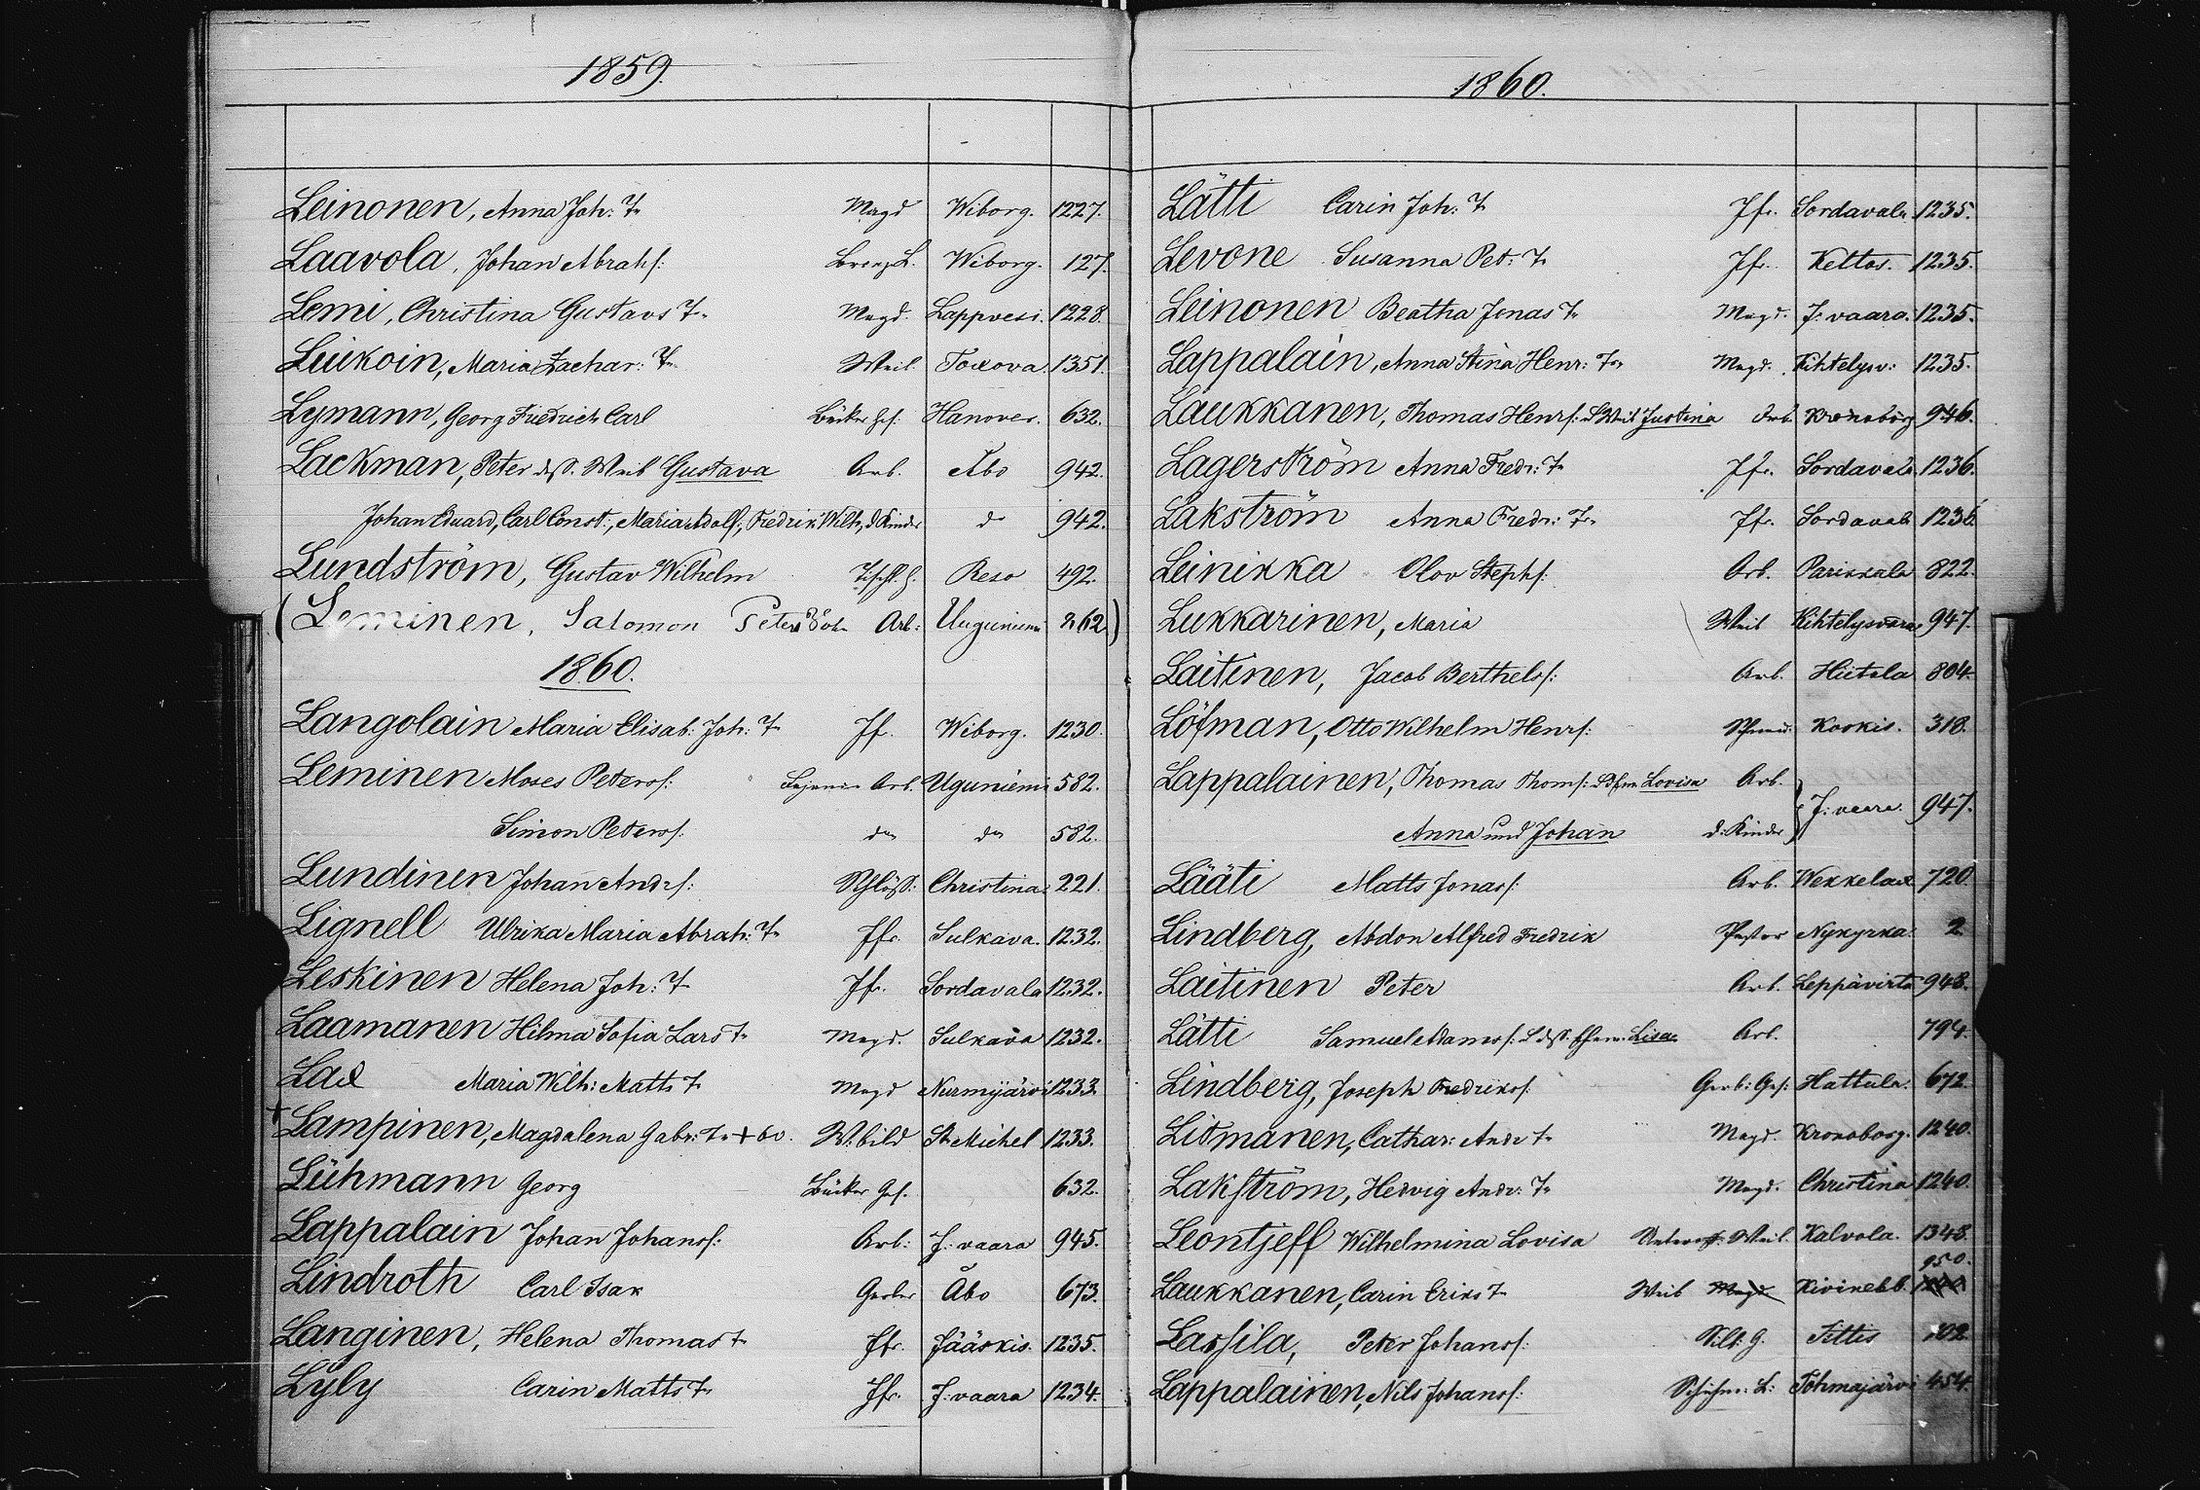 1859.
Leinonen, Anna Joh: T. Magd Wiborg. 1227.
Laavola, Johan Abrahs: Wiborg. 127.
Lemi, Christina Gustavs T. Magd. Lappvesi. 1228.
Liikoin, Maria Zachar: T. Weib Toxova. 1351.
Lymann, Georg Friedrich Carl Bäcker Ges. Hanover. 632.
Lackman, Peter deß. Weib Gustava Arb. Åbo 942.
Johan Eduard, Carl Const:, Maria Adolf:, Fredrik Wilh, d Kinder do 942.
Lundström, Gustav Wilhelm Tischl. G. Reso 492.
(Leminen, Salomon Peters Sohn Arb: Uuguniemi 262)
1860.
Langolain Maria Elisab: Joh: T. Jf. Wiborg. 1230.
Leminen Moses Peters: Arb. Uguniemi 582.
Simon Peters: do do 582.
Lundinen Johan Andrs: Schlöß: Christina 221.
Lignell Ulrika Maria Abrah: T. Jfr. Sulkava. 1232.
Leskinen Helena Joh: T Jfr. Sordavala 1232.
Laamanen Hilma Sofia Lars T. Magd. Sulkava 1232.
Lax Maria Wilh: Matts T. Magd Nurmijärvi 1233.
+ Lampinen, Magdalena Gabr: T. + 60. W.bild St Michel 1233.
Lühmann Georg Bäcker Ges. 632.
Lappalain Johan Johans: Arb: J: vaara 945.
Lindroth Carl Isak Gerber Åbo 673.
Langinen, Helena Thomas T. Jfr. Jääskis. 1235.
Lyly Carin Matts T. Jfr. J: vaara 1234.
1860.
Lätti Carin Joh: T. Jfr. Sordavala 1235.
Levone Susanna Pet: T. Jfr. Keltos. 1235.
Leinonen Beatha Jonas T. Magd. J: vaara. 1235.
Lappalain, Anna Stina Henr: T. Magd. Kihtelysv: 1235.
Laukkanen, Thomas Henrs: & Weib Justina Arb. Kronoborg 946.
Lagerström Anna Fredr: T. Jfr. Sordavala 1236.
Lakström Anna Fredr: T. Jfr. Sordavala 1236.
Leinikka Olov Stephs: Arb. Parikkala 822.
Lukkarinen, Maria Weib Kihtelysvara 947.
Laitinen, Jacob Berthels: Arb. Hiitola 804.
Löfman, Otto Wilhelm Henrs: Koskis. 318.
Lappalainen, Thomas Thoms: Lovisa Arb.
Anna und Johan d: Kinder J: vaara. 947.
Lääti Matts Jonas: Arb. Wekkelax 720.
Lindberg, Abdon Alfred Fredrik Pastor Nykyrka. 2
Laitinen Peter Arb. Leppävirta 948.
Lätti Samuel Adams: & deß. Ehew. Lisa Arb. 794.
Lindberg, Joseph Fredriks: Gerb: Ges: Hattula. 672.
Litmanen, Cathar: Andr T. Magd. Kronoborg. 1240.
Lakström, Hedvig Andr: T. Magd. Christina 1240.
Leontjeff Wilhelmina Lovisa Unteroff: Weib Kalvola. 1348.
Laukkanen, Carin Eriks T. Weib Magd Kivinebb. 950. 1240
Lassila, Peter Johans: Silb: G. Tittis
Lappalainen, Nils Johans: Schuhm: L: Tohmajärvi 454.